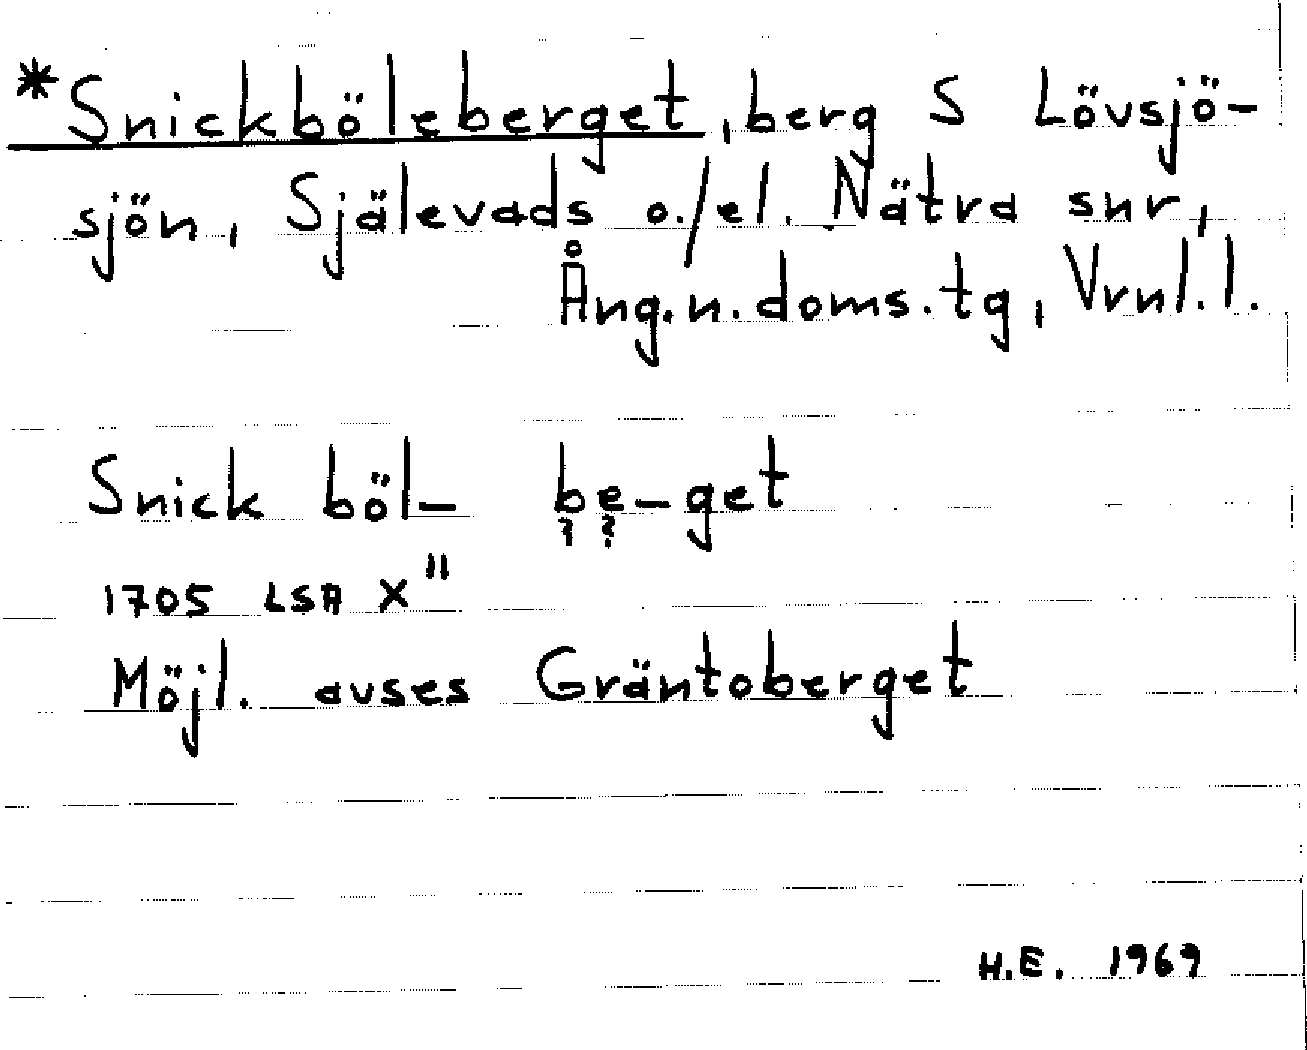 *Snickböleberget, berg S Lövsjö-
sjön, Själevads o./el. Nätra snr,
Ång.n.doms.tg, Vrnl.l.
Snick böl– be–get
? ?
1705 LSA X"
Möjl. avses Gräntoberget
H.E. 1969